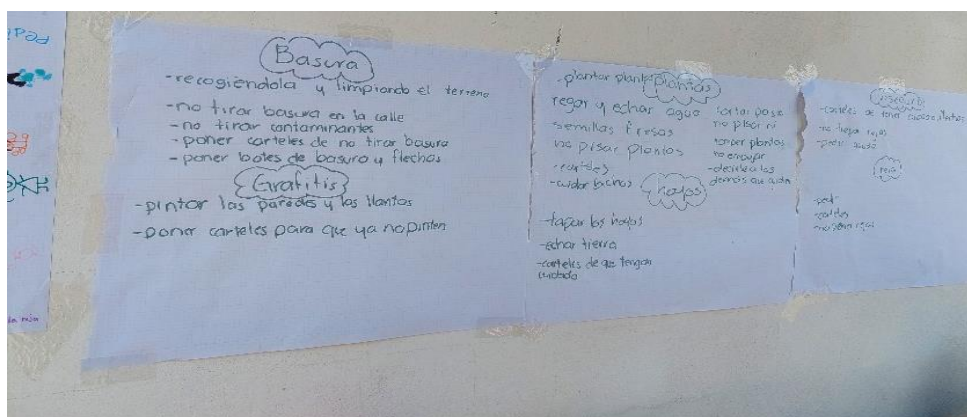 Basura
-recogiéndola y limpiando el terreno
-no tirar basura en la calle
-no tirar contaminantes
-poner carteles de no tirar basura
-poner botes de basura y flechas
Grafitis
-pintar las paredes y las llantas
-poner carteles para que ya no pinten
-plantar
plantas
regar y echar agua
semillas fresas
no pisar plantas
-carteles
-cuidar bichos
cortar pasto
no pisar ni
romper plantas
no empujar
-decirle a los
demás que cuiden
hoyos
-tapar los hoyos
-echar tierra
-carteles de que tengan
cuidado
-carteles de tener cuidado
-no trepar rejas
-pedir ayuda
reja
-pedir
-carteles